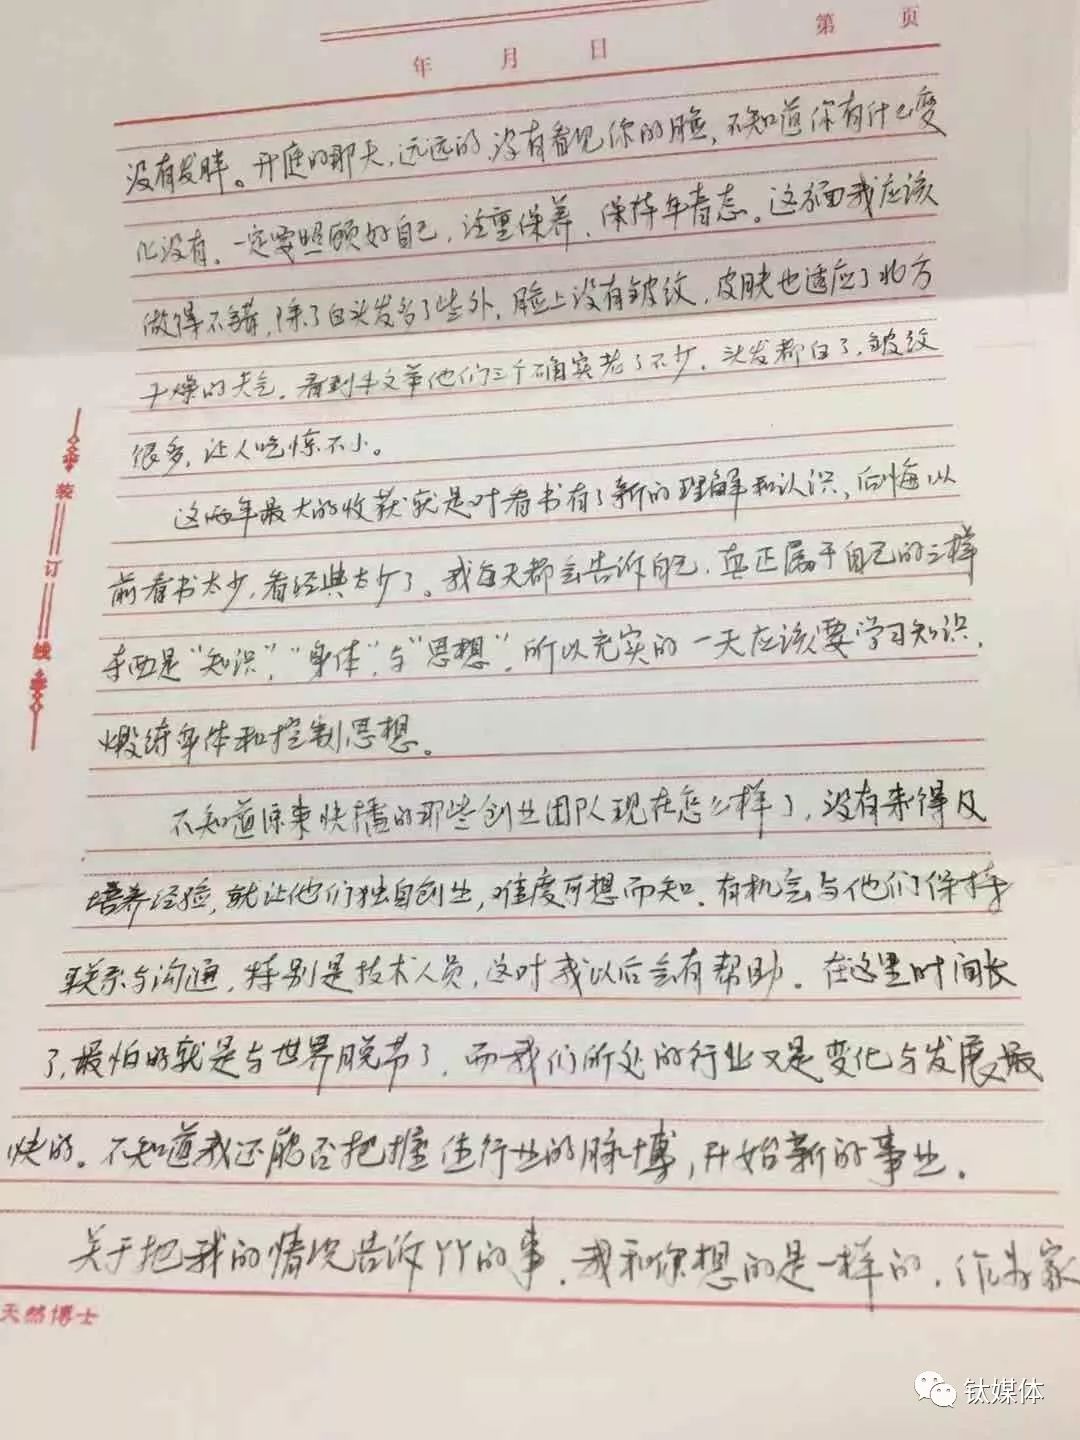 第 页
年 月 日
没有发胖。开庭的那天,远远的,没有看见你的脸,不知道你有什么变
化没有,一定要照顾好自己,注重保养,保持年青态。这方面我应该
做得不错,除了白头发多了些外,脸上没有皱纹,皮肤也适应了北方
干燥的天气。看到牛文举他们三个确实老了不少,头发都白了,皱纹
很多,让人吃惊不小。
这两年最大的收获就是对看书有了新的理解和认识,后悔以
前看书太少,看经典太少了。我每天都会告诉自己,真正属于自己的三样
东西是“知识”,“身体”,与“思想”,所以充实的一天应该要学习知识,
煅练身体和控制思想。
不知道原来快播的那些创业团队现在怎么样了,没有来得及
培养经验,就让他们独自创业,难度可想而知。有机会与他们保持
联系与沟通,特别是技术人员,这对我以后会有帮助。在这里时间长
了,最怕的就是与世界脱节了,而我们所处的行业又是变化与发展最
快的。不知道我还能否把握住行业的脉博,开始新的事业。
关于把我的情况告诉丫丫的事,我和你想的是一样的,作为家
装订线
天然博士
钛媒体